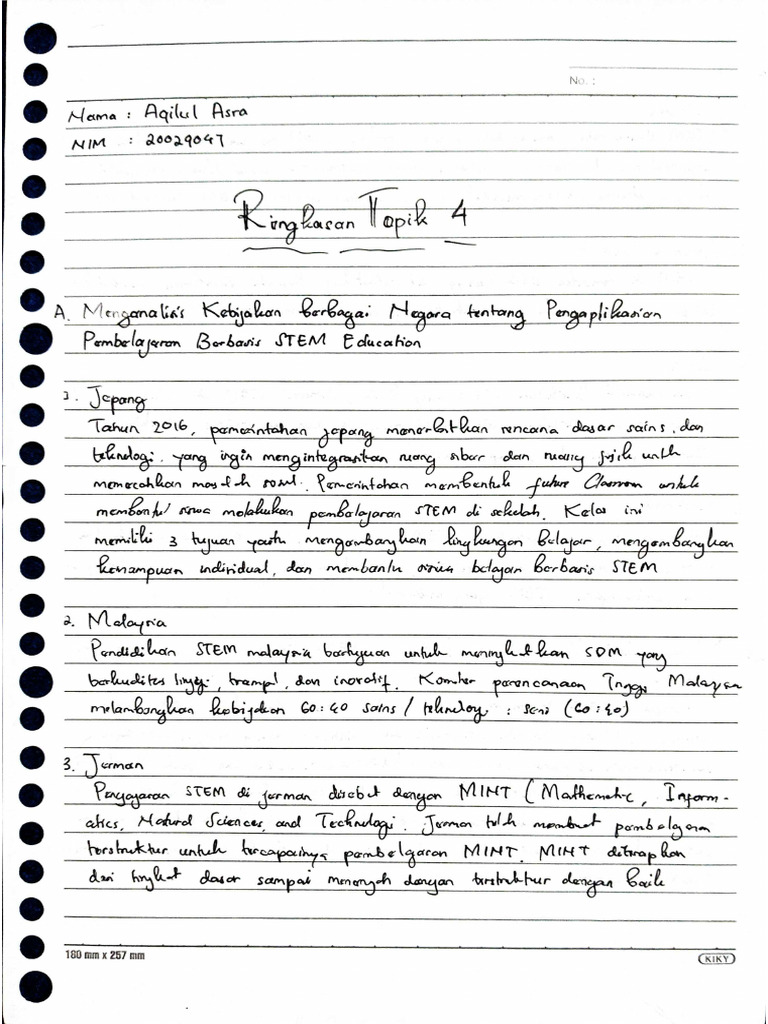 No. :
Nama : Aqilul Asra
NIM : 20029047
Ringkasan Topik 4
A. Menganalisis Kebijakan berbagai Negara tentang Pengaplikasian
Pembelajaran Berbasis STEM Education
1. Jepang
Tahun 2016, pemerintahan jepang menerbitkan rencana dasar sains dan
teknologi yang ingin mengintegrasikan ruang siber dan ruang fisik untuk
memecahkan masalah sosial. Pemerintahan membentuk future Classroom untuk
membantu siswa melakukan pembelajaran STEM di sekolah. Kelas ini
memiliki 3 tujuan yaitu mengembangkan lingkungan belajar, mengembangkan
kemampuan individual, dan membantu siswa belajar berbasis STEM
2. Malaysia
Pendidikan STEM malaysia bertujuan untuk meningkatkan SDM yang
berkualitas tinggi, trampil, dan inovatif. Komite perencanaan Tinggi Malaysia
melambangkan kebijakan 60:40 sains / teknologi : seni (60:40)
3. Jerman
Pengajaran STEM di jerman disebut dengan MINT (Mathematic, Inform-
atics, Natural Sciences, and Technologi. Jerman telah membuat pembelajaran
terstruktur untuk tercapainya pembelajaran MINT. MINT diterapkan
dari tingkat dasar sampai menengah dengan terstruktur dengan baik
180 mm x 257 mm
KIKY